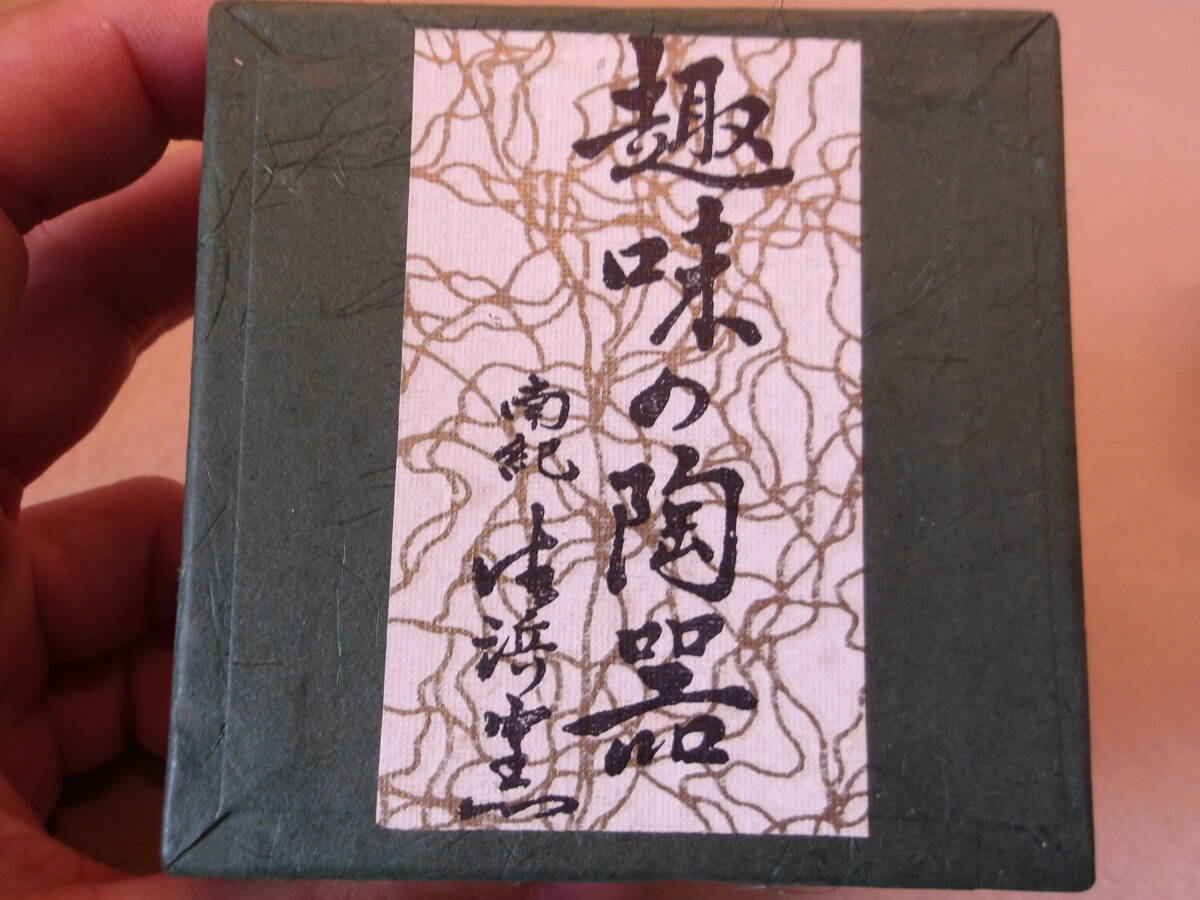 趣味の陶器
南紀 生浜窯